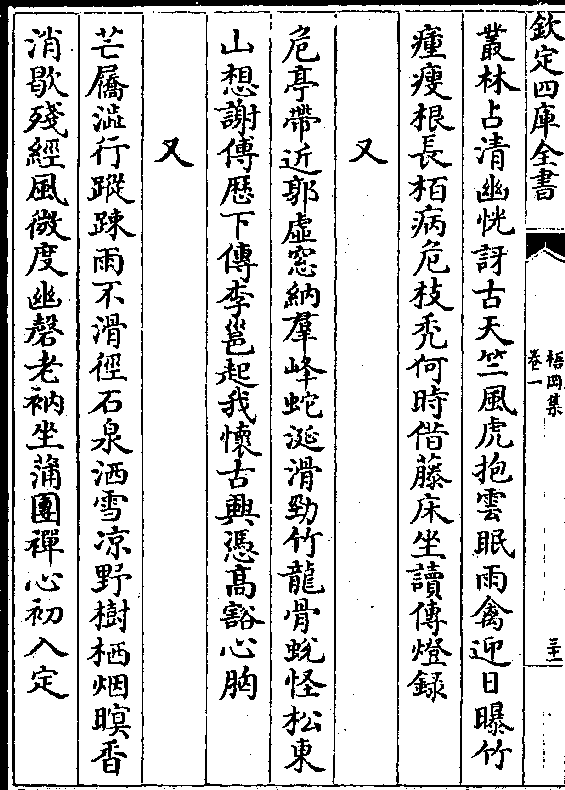 欽定四庫全書
梧岡集
卷一
三十一
叢林占清幽恍訝古天竺風虎抱雲眠雨禽迎日曝竹
㾿瘦根長栢病危枝禿何時借藤床坐讀傳燈錄
又
危亭帶近郭虛窓納羣峰蛇涎滑勁竹龍骨蛻怪松東
山想謝傅歴下傳李邕起我懷古興憑髙豁心胸
又
芒屩澁行蹤踈雨不滑徑石泉洒雪凉野樹栖烟暝香
消歇殘經風微度幽磬老衲坐蒲團禪心初入定